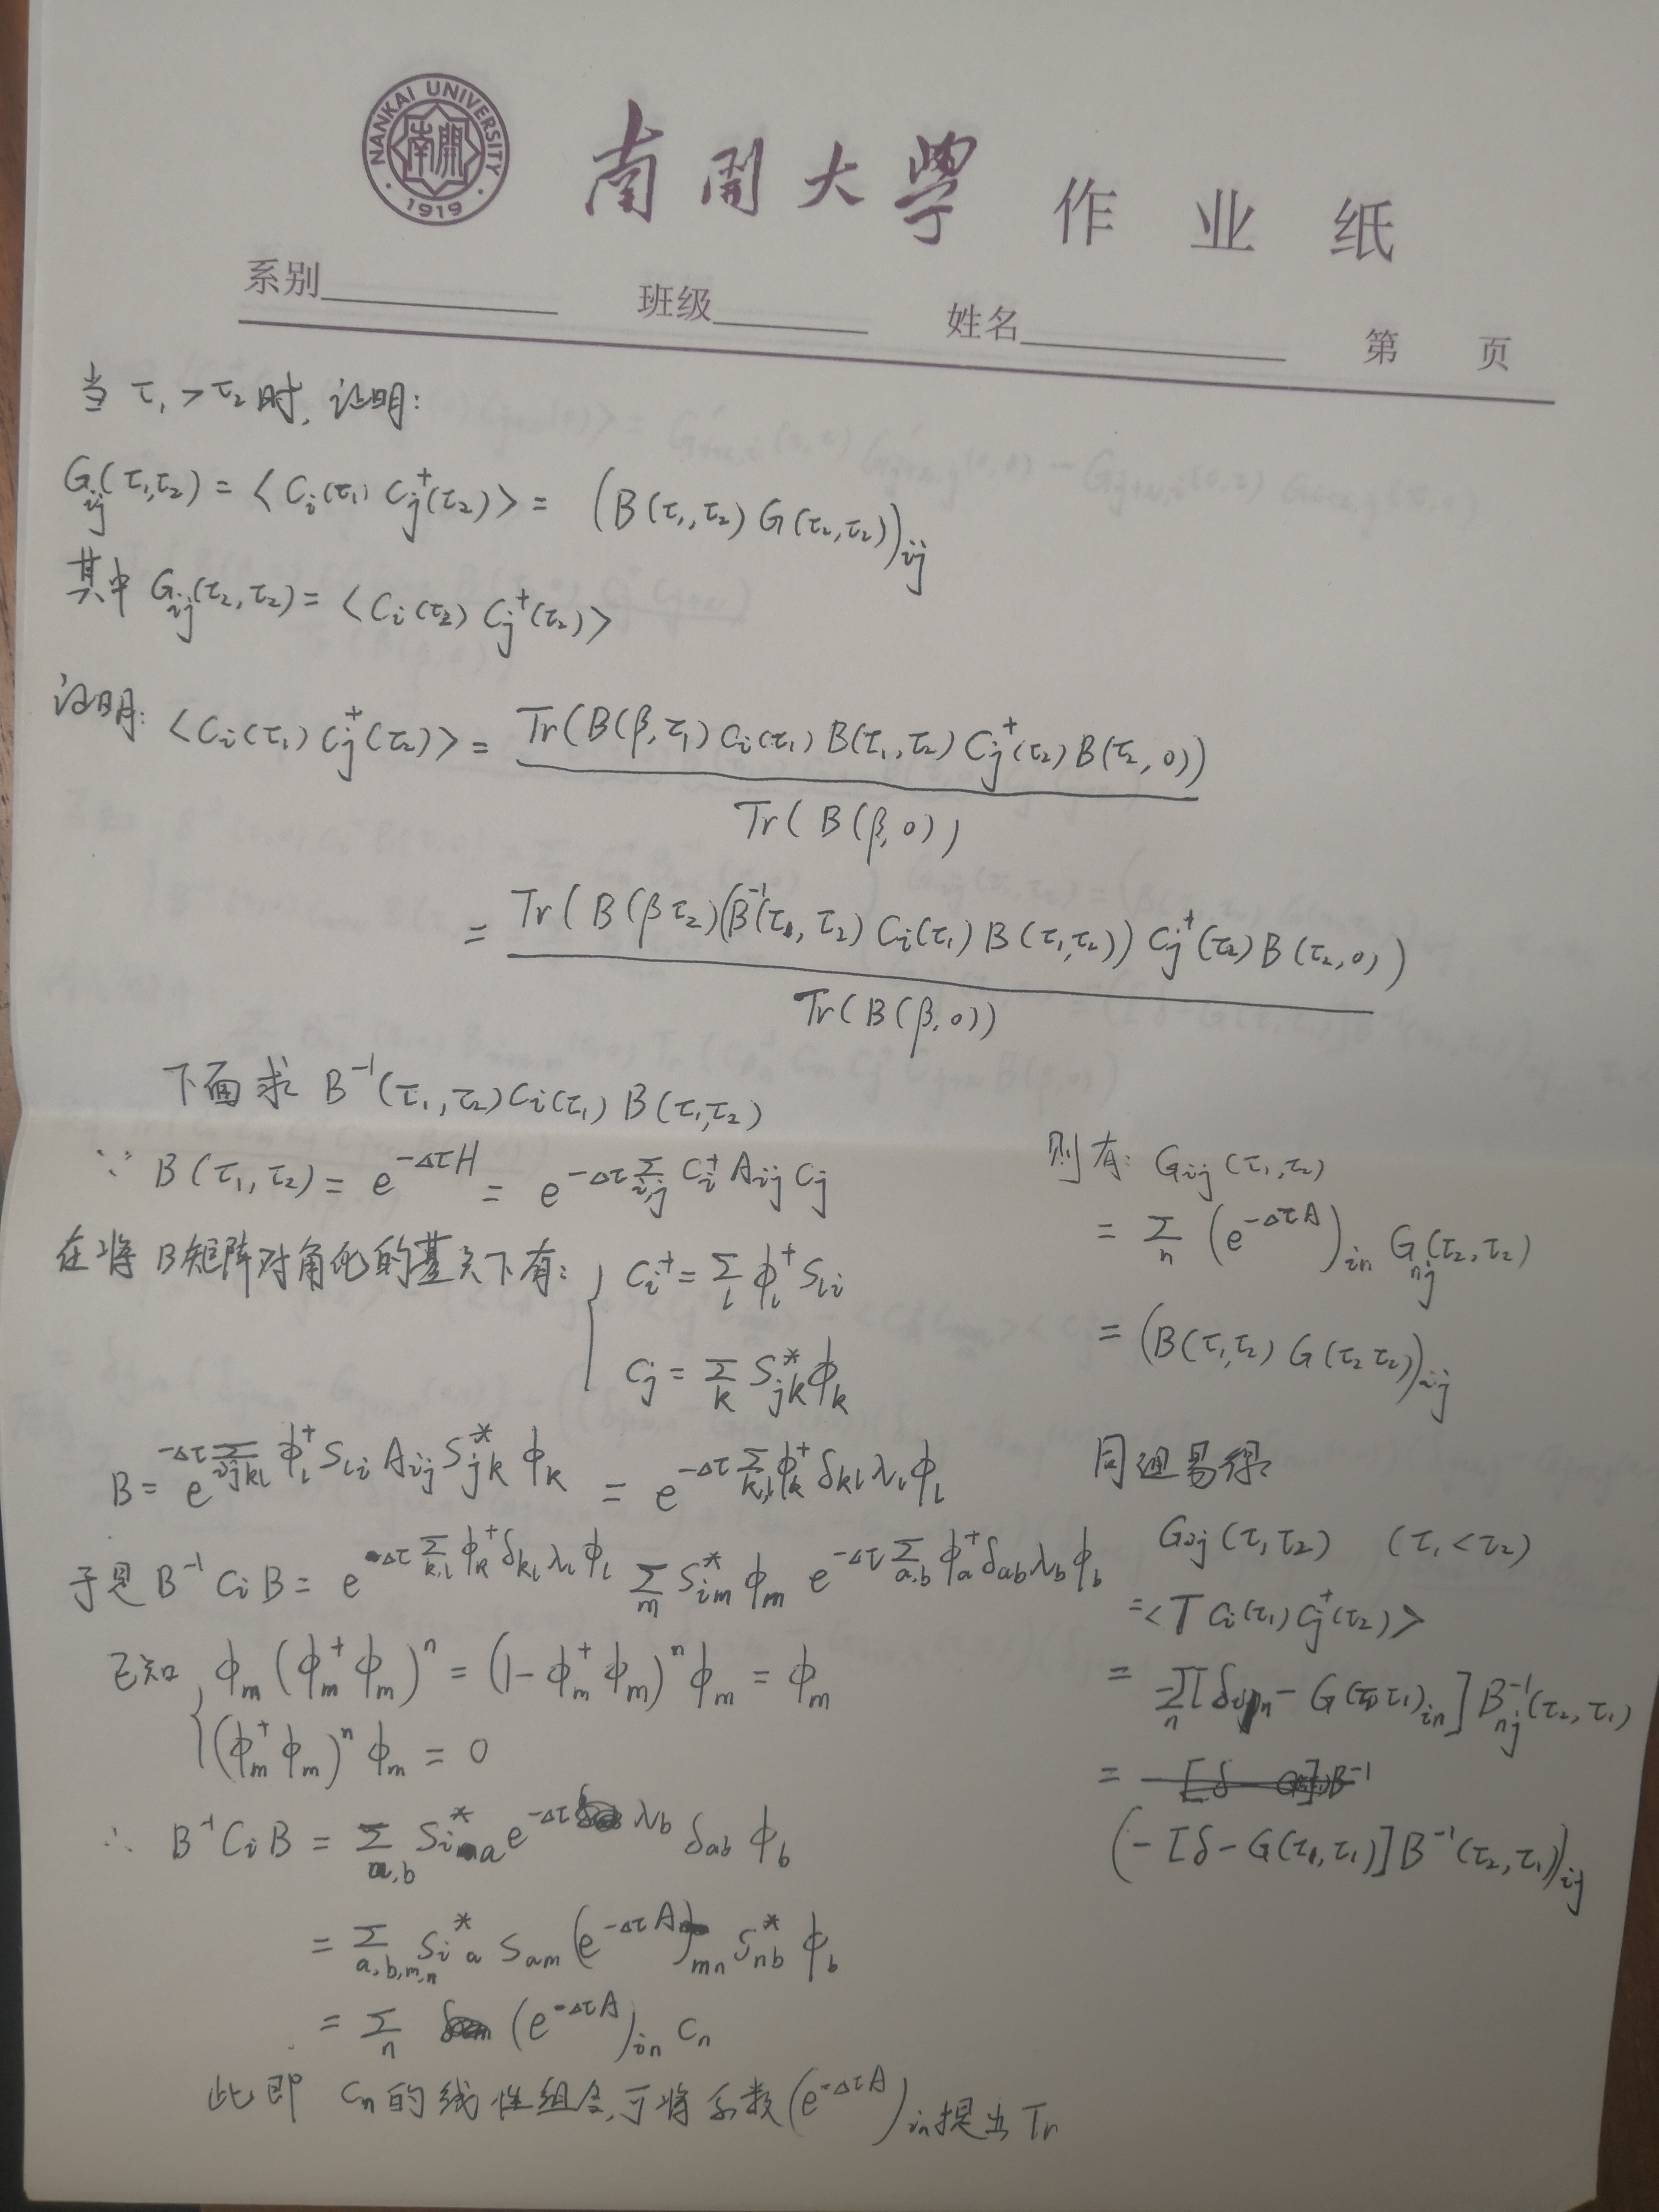 NANKAI UNIVERSITY
南開
1919
南開大學 作业纸
系别 班级 姓名 第 页
当 τ₁ > τ₂ 时, 证明:
G_ij(τ₁,τ₂) = ⟨C_i(τ₁) C_j^+(τ₂)⟩ = (B(τ₁,τ₂) G(τ₂,τ₂))_ij
其中 G_ij(τ₂,τ₂) = ⟨C_i(τ₂) C_j^+(τ₂)⟩
证明: ⟨C_i(τ₁) C_j^+(τ₂)⟩ = Tr(B(β,τ₁) C_i(τ₁) B(τ₁,τ₂) C_j^+(τ₂) B(τ₂,0))
Tr(B(β,0))
= Tr(B(β τ₂)(B^-1(τ₁,τ₂) C_i(τ₁) B(τ₁,τ₂)) C_j^+(τ₂) B(τ₂,0))
Tr(B(β,0))
下面求 B^-1(τ₁,τ₂) C_i(τ₁) B(τ₁,τ₂)
∵ B(τ₁,τ₂) = e^{-Δτ H} = e^{-Δτ Σ_{i,j} C_i^+ A_ij C_j}
在将 B矩阵对角化的基矢下有: { C_i^+ = Σ_l φ_l^+ S_li
C_j = Σ_k S_jk^* φ_k
B = e^{-Δτ Σ_{ijkl} φ_l^+ S_li A_ij S_jk^* φ_k} = e^{-Δτ Σ_{k,l} φ_k^+ δ_kl λ_l φ_l}
于是 B^-1 C_i B = e^{Δτ Σ_{k,l} φ_k^+ δ_kl λ_l φ_l} Σ_m S_im^* φ_m e^{-Δτ Σ_{a,b} φ_a^+ δ_ab λ_b φ_b}
已知 { φ_m (φ_m^+ φ_m)^n = (1 - φ_m^+ φ_m)^n φ_m = φ_m
(φ_m^+ φ_m)^n φ_m = 0
∴ B^-1 C_i B = Σ_{a,b} S_ia^* e^{-Δτ λ_b} δ_ab φ_b
= Σ_{a,b,m,n} S_ia^* S_am (e^{-Δτ A})_mn S_nb^* φ_b
= Σ_n (e^{-Δτ A})_in C_n
此即 C_n的线性组合,可将系数(e^{-Δτ A})_in提出 Tr
则有: G_ij(τ₁,τ₂)
= Σ_n (e^{-Δτ A})_in G_nj(τ₂,τ₂)
= (B(τ₁,τ₂) G(τ₂ τ₂))_ij
同理易得:
G_ij(τ₁,τ₂) (τ₁<τ₂)
=⟨T C_i(τ₁) C_j^+(τ₂)⟩
= -Σ_n [δ_in - G(τ₁,τ₁)_in] B_nj^-1(τ₂,τ₁)
=
(-[δ - G(τ₁,τ₁)] B^-1(τ₂,τ₁))_ij